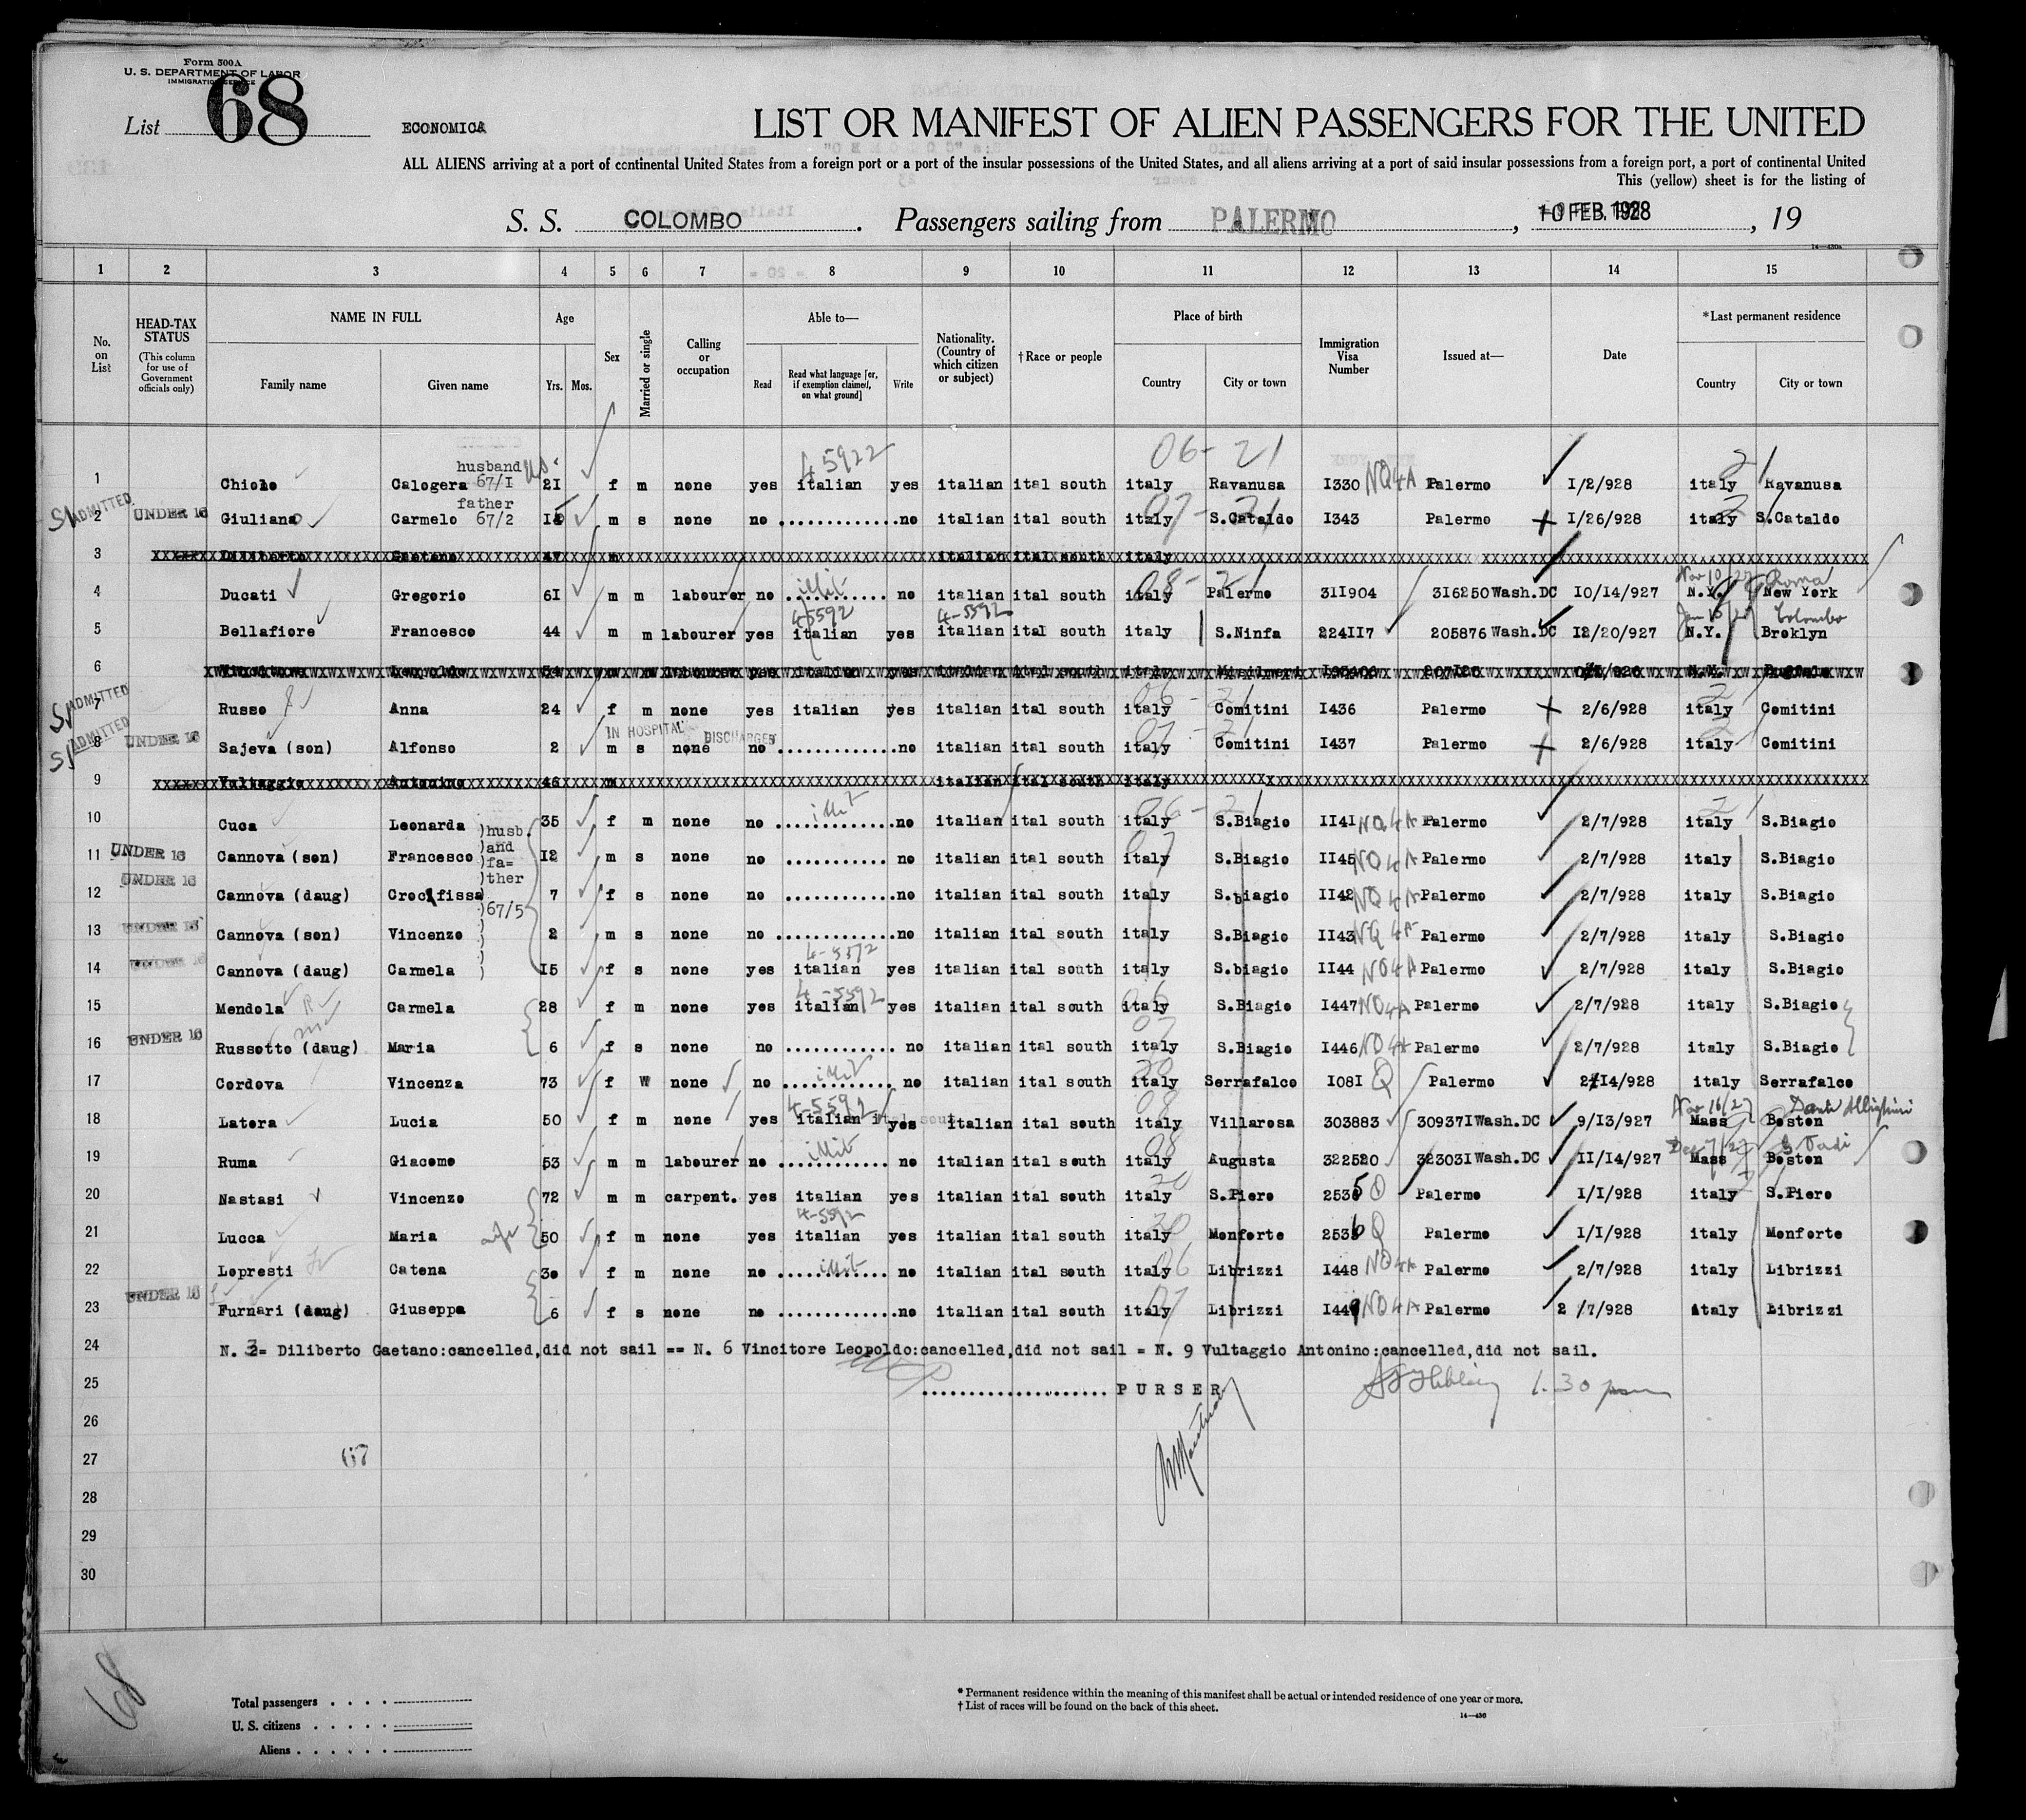 Form 500A
U. S. DEPARTMENT OF LABOR
IMMIGRATION SERVICE
List 68
ECONOMICA
LIST OR MANIFEST OF ALIEN PASSENGERS FOR THE UNITED
ALL ALIENS arriving at a port of continental United States from a foreign port or a port of the insular possessions of the United States, and all aliens arriving at a port of said insular possessions from a foreign port, a port of continental United
This (yellow) sheet is for the listing of
S. S. COLOMBO. Passengers sailing from PALERMO, 10 FEB. 1928, 19
1 2 3 4 5 6 7 8 9 10 11 12 13 14 15
No. on List
HEAD-TAX STATUS (This column for use of Government officials only)
NAME IN FULL
Family name Given name
Age
Yrs. Mos.
Sex
Married or single
Calling or occupation
Able to—
Read Read what language [or, if exemption claimed, on what ground] Write
Nationality. (Country of which citizen or subject)
†Race or people
Place of birth
Country City or town
Immigration Visa Number
Issued at—
Date
*Last permanent residence
Country City or town
45922 06-21
husband
1 Chiolo Calogera 67/I 2I f m none yes italian yes italian ital south italy Ravanusa I330 NQ4A Palermo I/2/928 italy Ravanusa
father
SI ADMITTED 2 UNDER 16 Giuliano Carmelo 67/2 m s none no no italian ital south italy S.Cataldo I343 Palermo I/26/928 italy S.Cataldo
3 Diliberto Gaetano 47 m italian ital south italy
illit 08-21 Nov 10/27 Roma
4 Ducati Gregorio 6I m m labourer no no italian ital south italy Palermo 3II904 316250 Wash.DC IO/I4/927 N.Y. New York
45592 4-5592 Colombo
5 Bellafiore Francesco 44 m m labourer yes italian yes italian ital south italy S.Ninfa 224II7 205876 Wash.DC I2/20/927 N.Y. Broklyn
6 Vincitore Leopoldo 54 m m labourer yes italian yes italian ital south italy Misilmeri N.Y. Buffalo
SI ADMITTED 7 Russo Anna 24 f m none yes italian yes italian ital south italy Comitini I436 Palermo 2/6/928 italy Comitini
IN HOSPITAL DISCHARGED
SI ADMITTED 8 UNDER 16 Sajeva (son) Alfonso 2 m s none no no italian ital south italy Comitini I437 Palermo 2/6/928 italy Comitini
9 Vultaggio Antonino 46 m italian ital south italy
illit 06-21
10 Cuca Leonarda )husb. 35 f m none no no italian ital south italy S.Biagio II4I NQ4A Palermo 2/7/928 italy S.Biagio
)and
11 UNDER 16 Cannova (son) Francesco )fa= I2 m s none no no italian ital south italy S.Biagio II45 NQ4A Palermo 2/7/928 italy S.Biagio
)ther
12 UNDER 16 Cannova (daug) Crocifissa 7 f s none no no italian ital south italy S.biagio II42 NQ4A Palermo 2/7/928 italy S.Biagio
)67/5
13 UNDER 16 Cannova (son) Vincenzo 2 m s none no no italian ital south italy S.Biagio II43 NQ4A Palermo 2/7/928 italy S.Biagio
4-5592
14 UNDER 16 Cannova (daug) Carmela I5 f s none yes italian yes italian ital south italy S.biagio II44 NQ4A Palermo 2/7/928 italy S.Biagio
4-5592
15 Mendola Carmela 28 f m none yes italian yes italian ital south italy S.Biagio I447 NQ4A Palermo 2/7/928 italy S.Biagio
16 UNDER 16 Russotto (daug) Maria 6 f s none no no italian ital south italy S.Biagio I446 NQ4A Palermo 2/7/928 italy S.Biagio
illit
17 Cordova Vincenza 73 f W none no no italian ital south italy Serrafalco I08I Q Palermo italy Serrafalco
4-5592 Nov 16/27 Dante Allighieri
18 Latora Lucia 50 f m none yes italian yes italian ital south italy Villarosa 303883 30937I Wash.DC 9/I3/927 Mass Boston
illit
19 Ruma Giacomo 53 m m labourer no no italian ital south italy Augusta 322520 32303I Wash.DC II/I4/927 Mass Boston
20 Nastasi Vincenzo 72 m m carpent. yes italian yes italian ital south italy S.Piero 2535 Q Palermo I/I/928 italy S.Piero
4-5592
21 Lucca Maria 50 f m none yes italian yes italian ital south italy Monforte 2536 Q Palermo I/I/928 italy Monforte
illit
22 Lopresti Catena 30 f m none no no italian ital south italy Librizzi I448 NQ4A Palermo 2/7/928 italy Librizzi
23 UNDER 16 Furnari (daug) Giuseppa 6 f s none no no italian ital south italy Librizzi I449 NQ4A Palermo 2 /7/928 italy Librizzi
24 N. 3= Diliberto Gaetano:cancelled,did not sail == N. 6 Vincitore Leopoldo:cancelled,did not sail = N. 9 Vultaggio Antonino:cancelled,did not sail.
25 ..................... PURSER 1.30 pm
26
27 67
28
29
30
68
Total passengers . . . .
U. S. citizens . . . . .
Aliens . . . . . .
* Permanent residence within the meaning of this manifest shall be actual or intended residence of one year or more.
† List of races will be found on the back of this sheet.
14—430